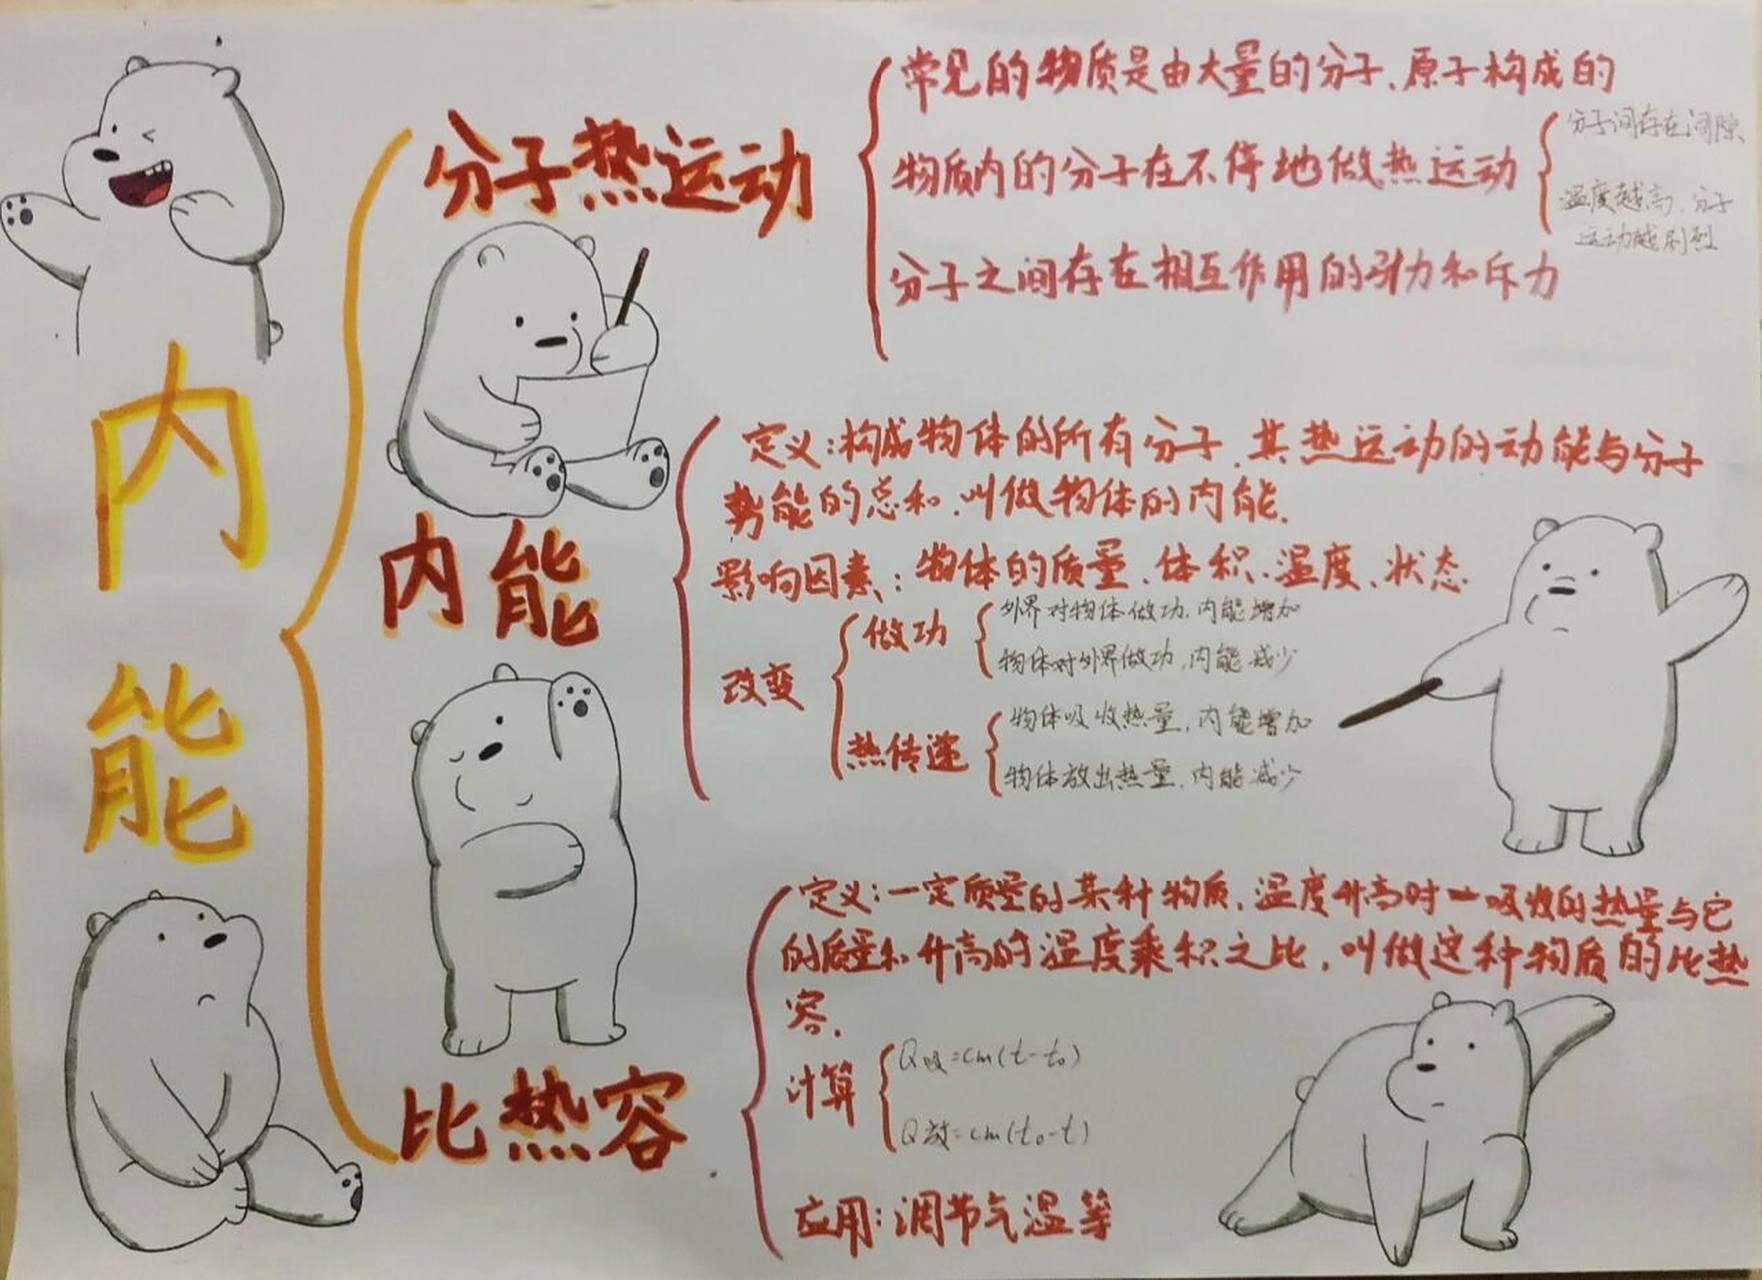 内能
分子热运动
常见的物质是由大量的分子、原子构成的
物质内的分子在不停地做热运动
分子间存在间隙
温度越高，分子
运动越剧烈
分子之间存在相互作用的引力和斥力
内能
定义：构成物体的所有分子，其热运动的动能与分子
势能的总和，叫做物体的内能.
影响因素：物体的质量、体积、温度、状态.
改变
做功
外界对物体做功，内能增加
物体对外界做功，内能减少
热传递
物体吸收热量，内能增加
物体放出热量，内能减少
比热容
定义：一定质量的某种物质，温度升高时吸收的热量与它
的质量和升高的温度乘积之比，叫做这种物质的比热
容.
计算
Q吸=cm(t-t₀)
Q放=cm(t₀-t)
应用：调节气温等